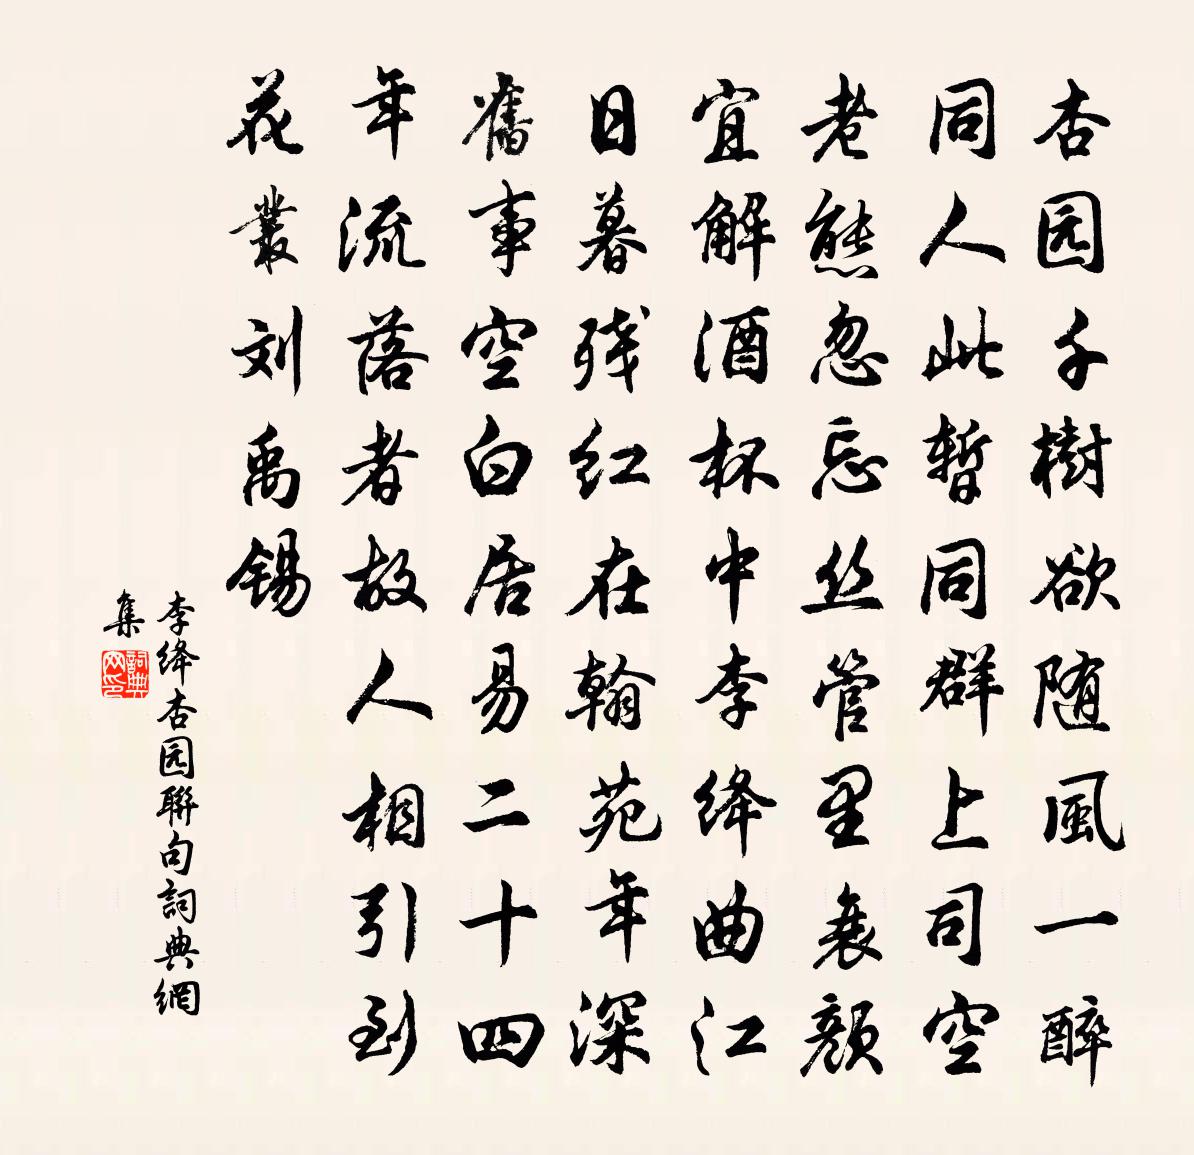 杏园千樹欲随風一醉
同人此暫同群上司空
老態忽忘丝管里衰颜
宜解酒杯中李绛曲江
日暮残红在翰苑年深
舊事空白居易二十四
年流落者故人相引到
花叢刘禹锡
李绛杏园聯句詞典網
集
詞典
网印